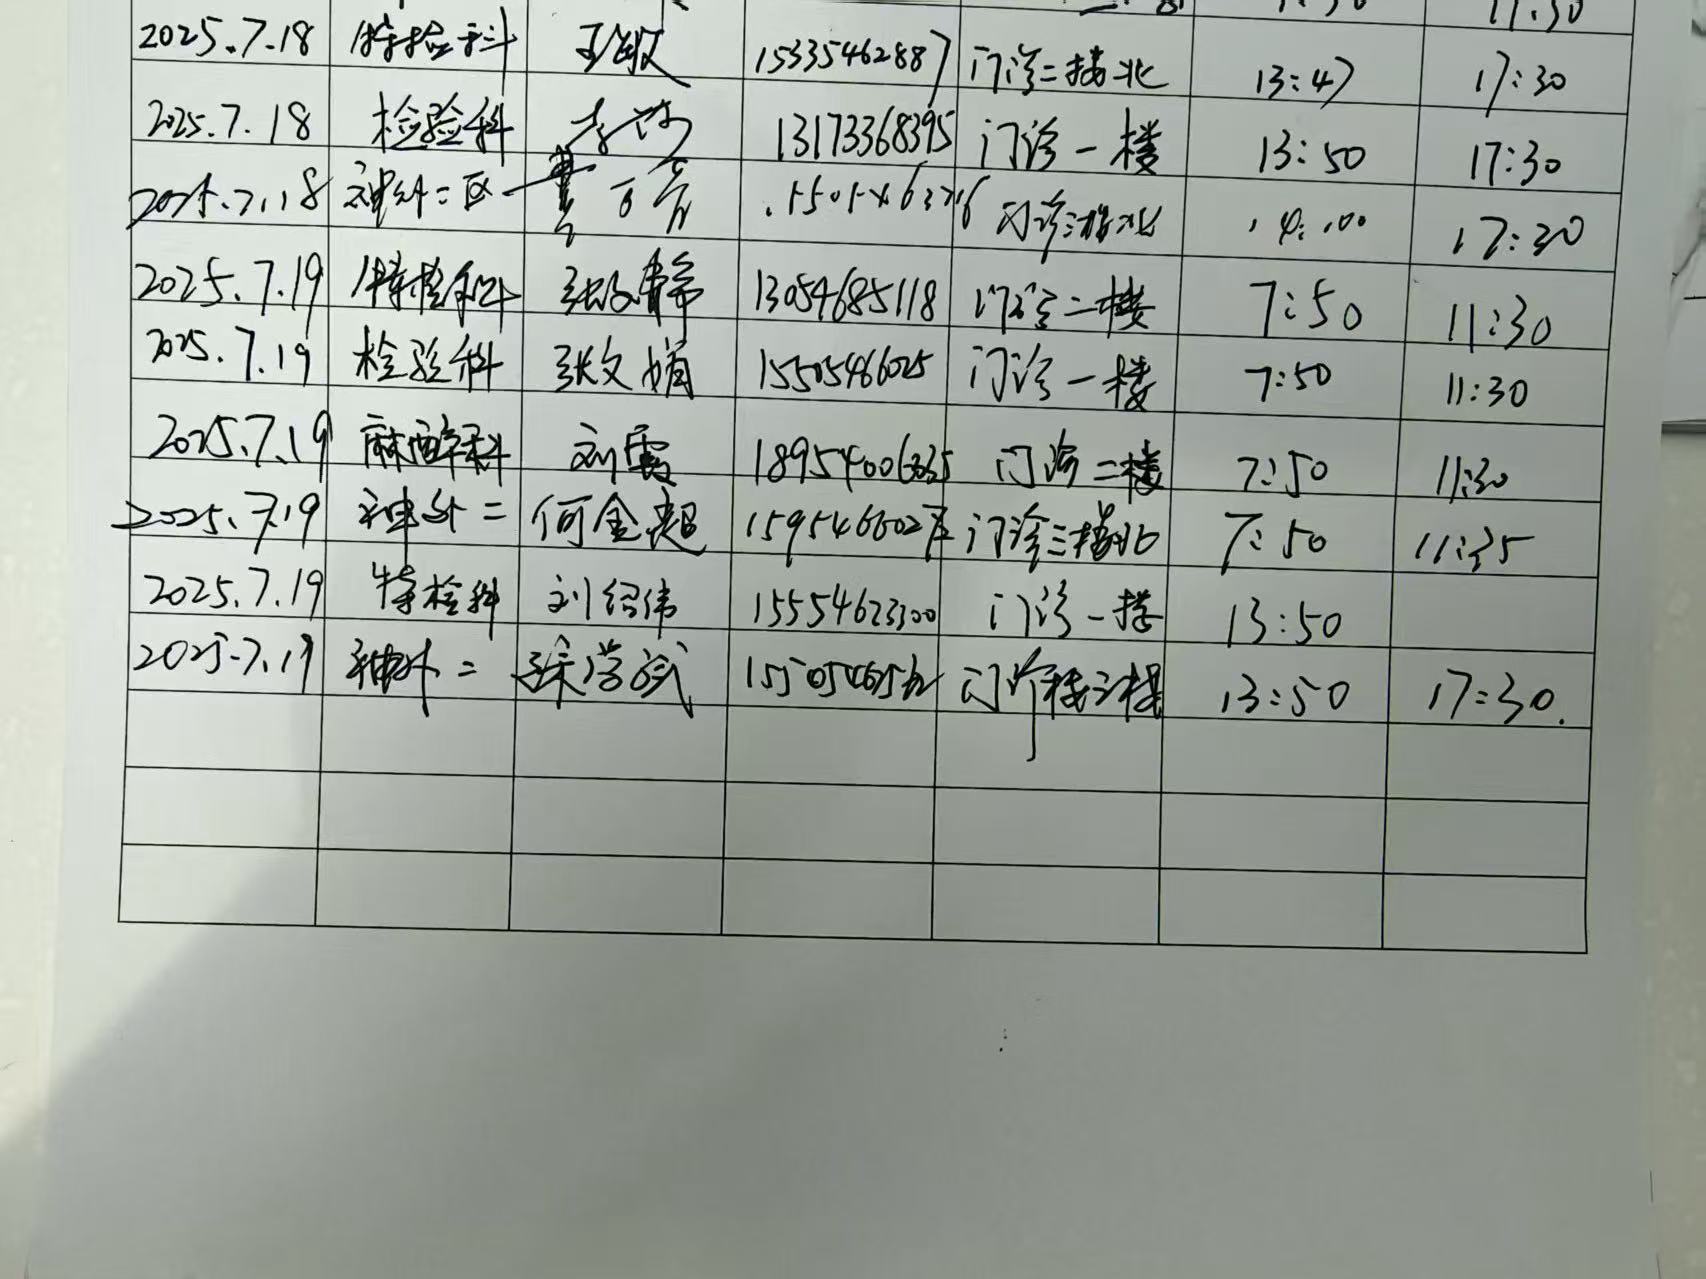 11:30
2025.7.18 特检科 王敏 15335462887 门诊二楼北 13:47 17:30
2025.7.18 检验科 13173368395 门诊一楼 13:50 17:30
2025.7.18 神外二区 门诊三楼北 14:00 17:30
2025.7.19 特检科 13054685118 门诊二楼 7:50 11:30
2025.7.19 检验科 张文娟 15505466025 门诊一楼 7:50 11:30
2025.7.19 麻醉科 刘霞 门诊二楼 7:50 11:30
2025.7.19 神外二 何金超 门诊三楼北 7:50 11:35
2025.7.19 特检科 刘绍伟 15554623300 门诊一楼 13:50
2025.7.19 神外二 门诊楼三楼 13:50 17:30.